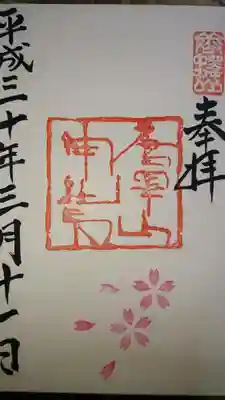 奉拝
山
神社
平成三十年三月十一日